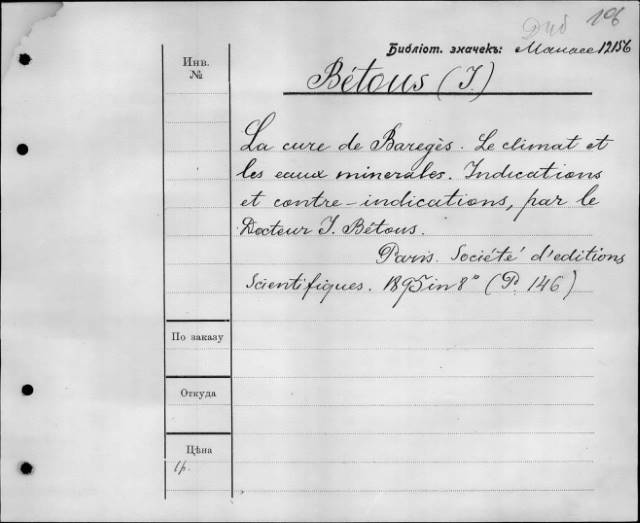 Дуб 196
Библіот. значекъ: Манасе 12156
Инв.
№
Bétous (J.)
La cure de Baregès. Le climat et
les eaux minerales. Indications
et contre-indications, par le
Docteur J. Bétous.
Paris. Société d'editions
Scientifiques. 1895 in 8° (P. 146)
По заказу
Откуда
Цѣна
1р.